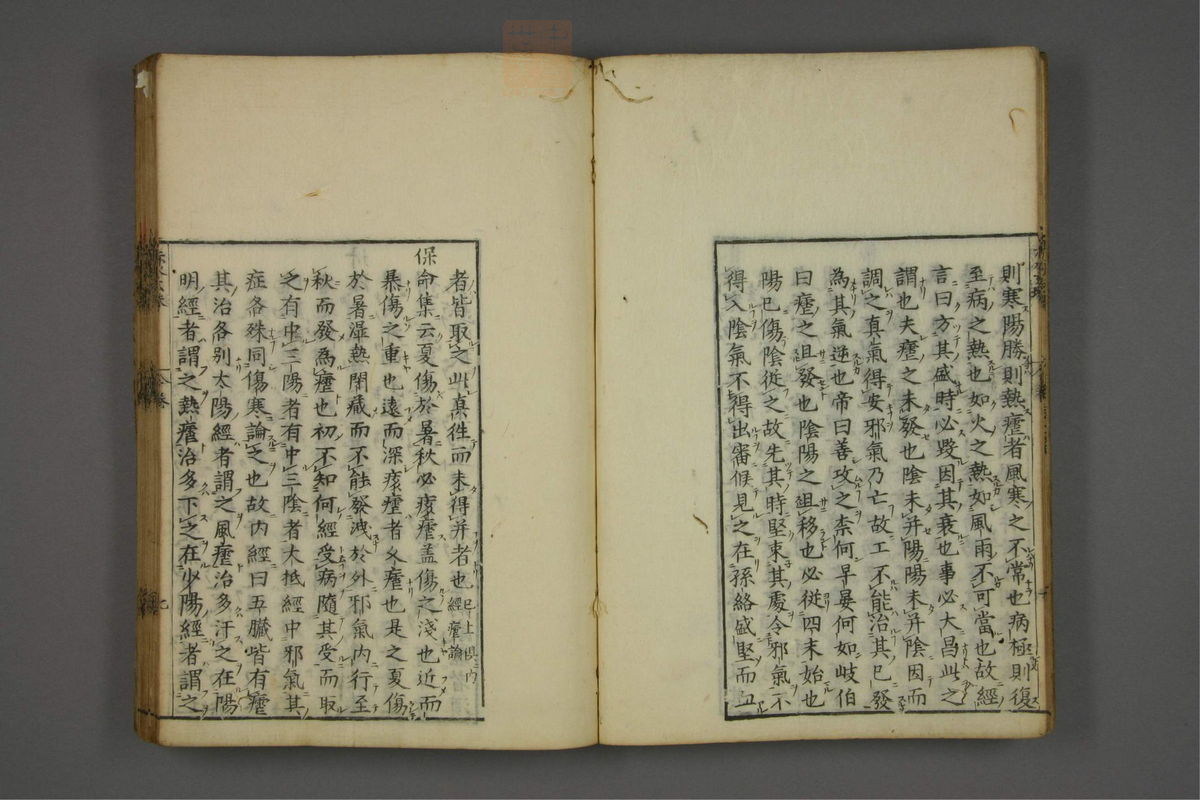 則寒陽勝則熱瘧者風寒之不常也病極則復
至病之熱也如火之熱如風雨不可當也故經
言曰方其盛時必毀因其衰也事必大昌此之
謂也夫瘧之未發也陰未并陽陽未并陰因而
調之真氣得安邪氣乃亡故工不能治其已發
為其氣逆也帝曰善攻之柰何早晏何如岐伯
曰瘧之且發也陰陽之且移也必從四末始也
陽已傷陰從之故先其時堅束其處令邪氣不
得入陰氣不得出審候見之在孫絡盛堅而血
者皆取之此真徃而未得并者也 已上俱內經瘧論
保命集云夏傷於暑秋必痎瘧盖傷之淺也近而
暴傷之重也遠而深痎瘧者久瘧也是之夏傷
於暑濕熱閉藏而不能發洩於外邪氣內行至
秋而發為瘧也初不知何經受病隨其受而取
之有中三陽者有中三陰者大抵經中邪氣其
症各殊同傷寒論之也故內經曰五臓皆有瘧
其治各别太陽經者謂之風瘧治多汗之在陽
明經者謂之熱瘧治多下之在少陽經者謂之